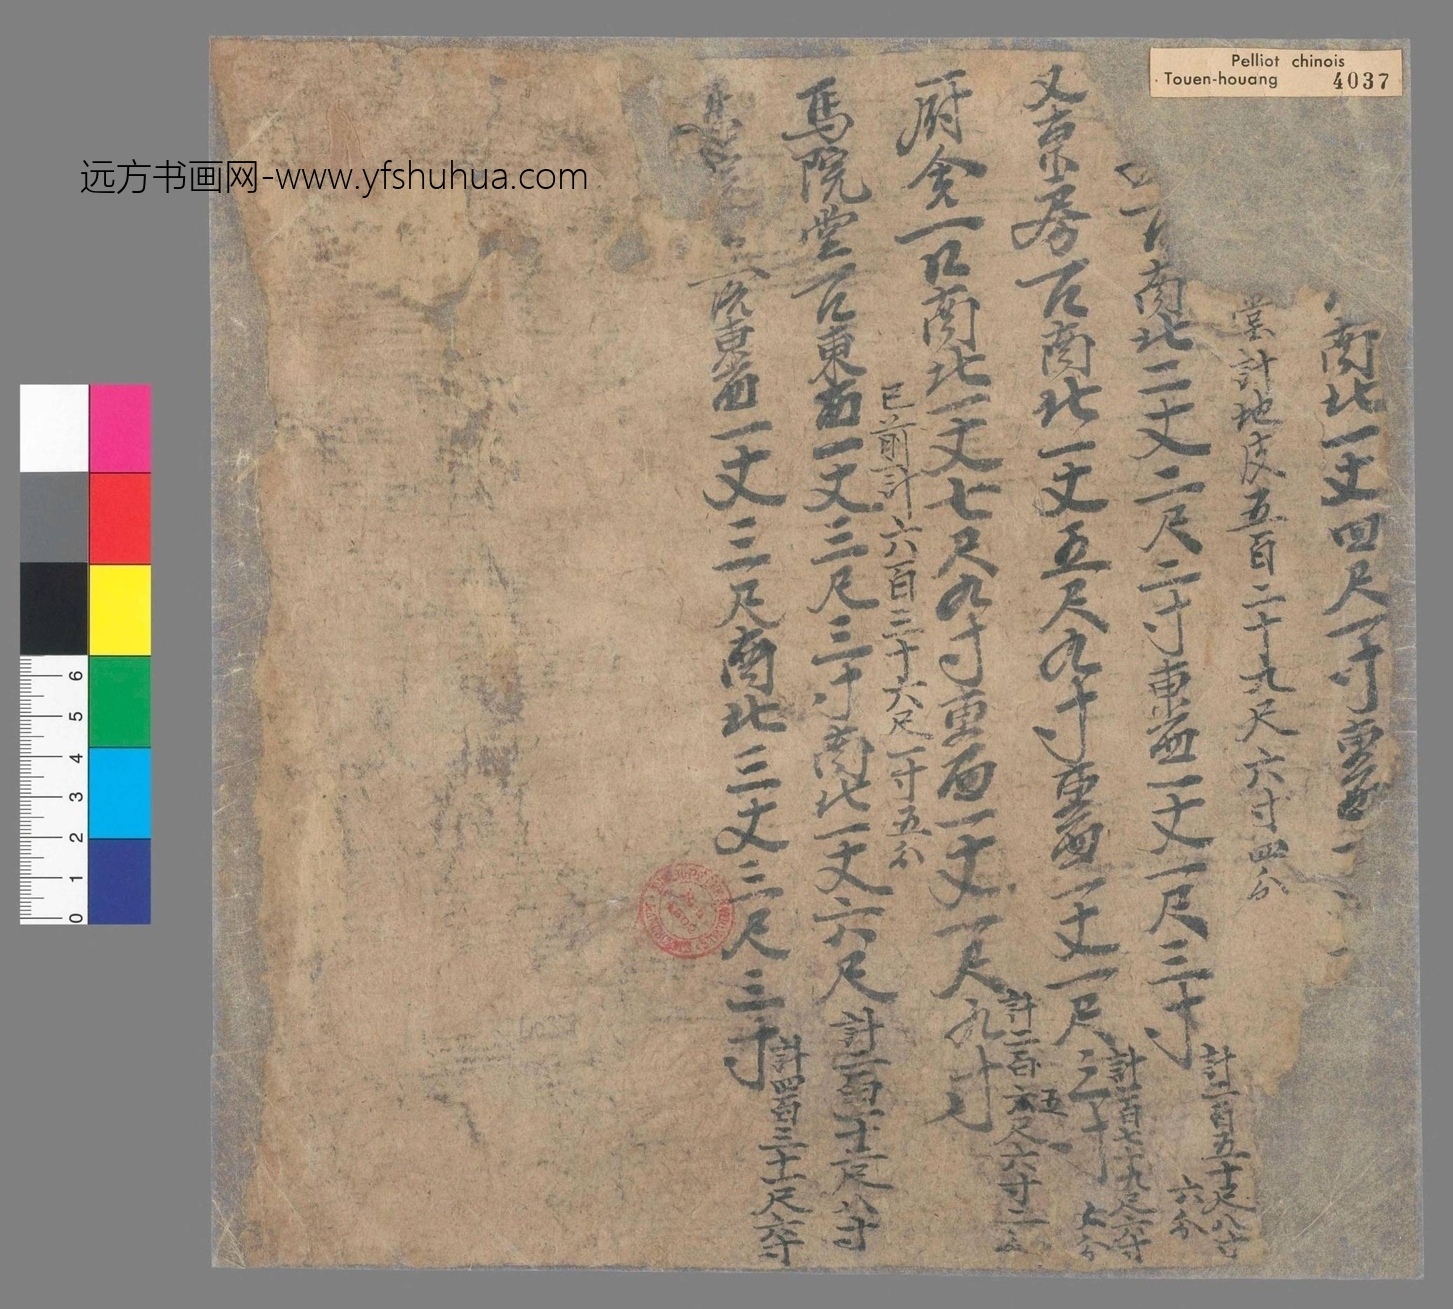 Pelliot chinois
Touen-houang 4037
远方书画网-www.yfshuhua.com
南北一丈四尺一寸東西一
堂計地皮五百二十九尺六寸四分
南北二丈二尺二寸東西一丈一尺三寸計二百五十尺八寸六分
又京房一口南北一丈五尺九寸東西一丈一尺三寸計一百七十九尺六寸七分
厨舍一口南北一丈七尺九寸東西一丈一尺九寸計二百六五尺六寸二分
已前計六百三十六尺一寸五分
馬院堂一口東西一丈三尺三寸南北一丈六尺計二百一十二尺八寸
馬院院東西一丈三尺南北三丈三尺三寸計四百三十一尺六寸
6
5
4
3
2
1
0